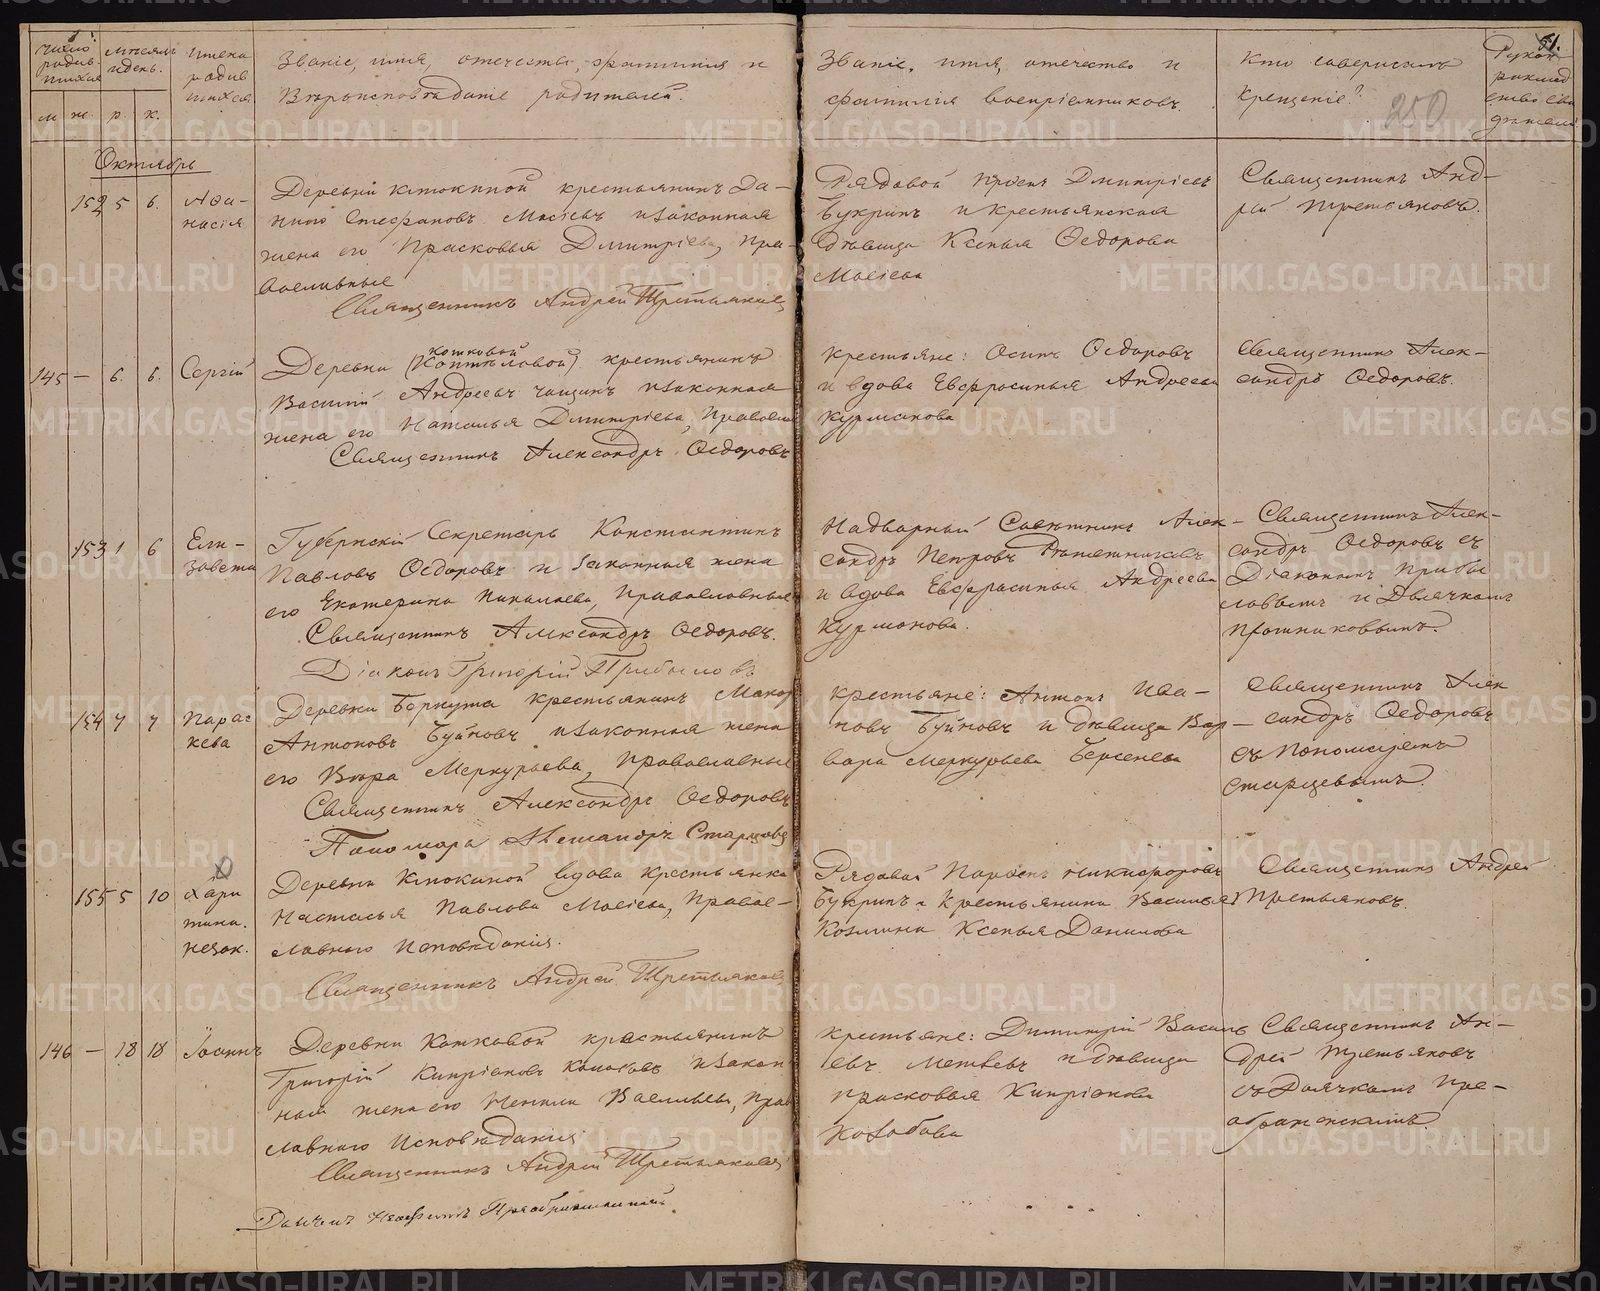 число родив-шихся
мѣсяцъ и день.
имена родив шихся
Званіе, имя, отечество, фамилія и
Вѣроисповѣданіе родителей.
Званіе, имя, отечество и
фамилія воспріемниковъ.
Кто совершалъ
крещеніе?
250
51.
м ж. р. к.
Октябрь
152 5 6. Афа-
насія
Деревни Клюкиной крестьянинъ Да-
нило Стефановъ Мосіевъ и законная
жена его Прасковья Дмитріева, Пра-
вославные
Священникъ Андрей Третьяковъ
Рядовой Дмитріевъ
Букринъ и крестьянская
дѣвица Ксенья Федорова
Мосіева
Священникъ Анд-
рей Третьяковъ.
145 — 6. 6. Сергій
Деревни Котковой крестьянинъ
Василій Андреевъ и законная
жена его Наталья Дмитріева, Православ
Священникъ Александръ Федоровъ
крестьяне: Осипъ Федоровъ
и вдова Евфросинья Андреева
Курманова
Священникъ Алек-
сандръ Федоровъ.
153 1 6 Ели-
завета
Губернскій Секретарь Константинъ
Павловъ Федоровъ и законная жена
его Екатерина Николаева, Православные
Священникъ Александръ Федоровъ.
Діаконъ Григорій Прибыловъ
Надворный Совѣтникъ Алек-
сандръ Петровъ
и вдова Евфросинья Андреева
Курманова.
Священникъ Алек-
сандръ Федоровъ съ
Діакономъ Прибы
ловымъ и Дьячкомъ
154 7 7 Парас
кева
Деревни Беркута крестьянинъ Макар
Антоновъ Буйновъ и законная жена
его Вѣра Меркурьева, Православные
Священникъ Александръ Федоровъ
Пономарь Александръ Старцовъ
крестьяне: Антонъ Ива-
новъ Буйновъ и дѣвица Вар-
вара Меркурьева Берсенева
Священникъ Алек
сандръ Федоровъ
съ Пономаремъ
Старцевымъ.
155 5 10 Хари
тина.
незак.
Деревни Клюкиной вдова крестьянка
Настасья Павлова Мосіева, Право-
славнаго Исповѣданія.
Священникъ Андрей Третьяковъ
Рядовой Парфенъ Никифоровъ
Букринъ и крестьянина Василья
Козмина Ксенья Данилова
Священникъ Андрей
Третьяковъ.
146 — 18 18 Іоаннъ
Деревни Котковой крестьянинъ
Григорій Кипріановъ и закон
ная жена его Ненила Васильева, Прав
славнаго Исповѣданія
Священникъ Андрей Третьяковъ
Дьячекъ Преображенскій
крестьяне: Димитрій Василь
евъ и дѣвица
Прасковья Кипріанова
Священникъ Ан-
дрей Третьяковъ
съ Дьячкомъ Пре-
ображенскимъ
METRIKI.GASO-URAL.RU